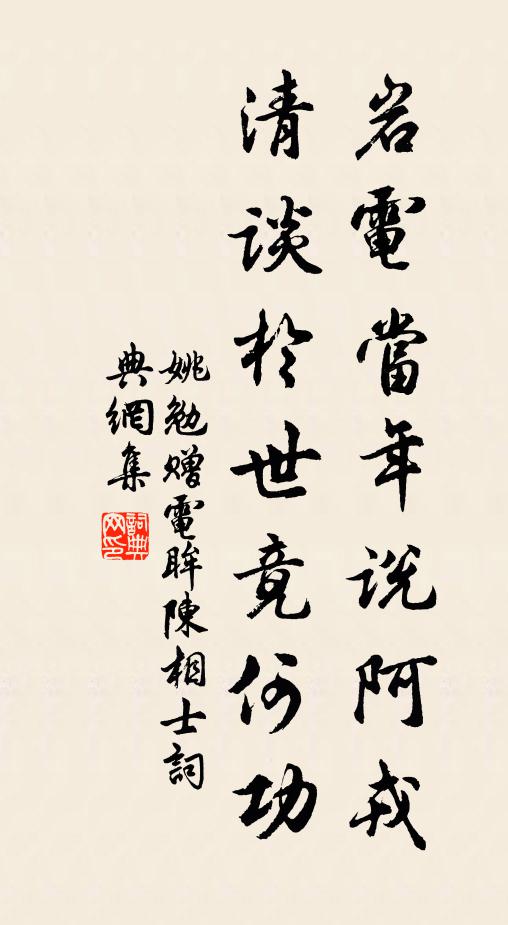 岩電當年説阿戎
清談於世竟何功
姚勉贈電眸陳相士詞
典網集
詞典网印